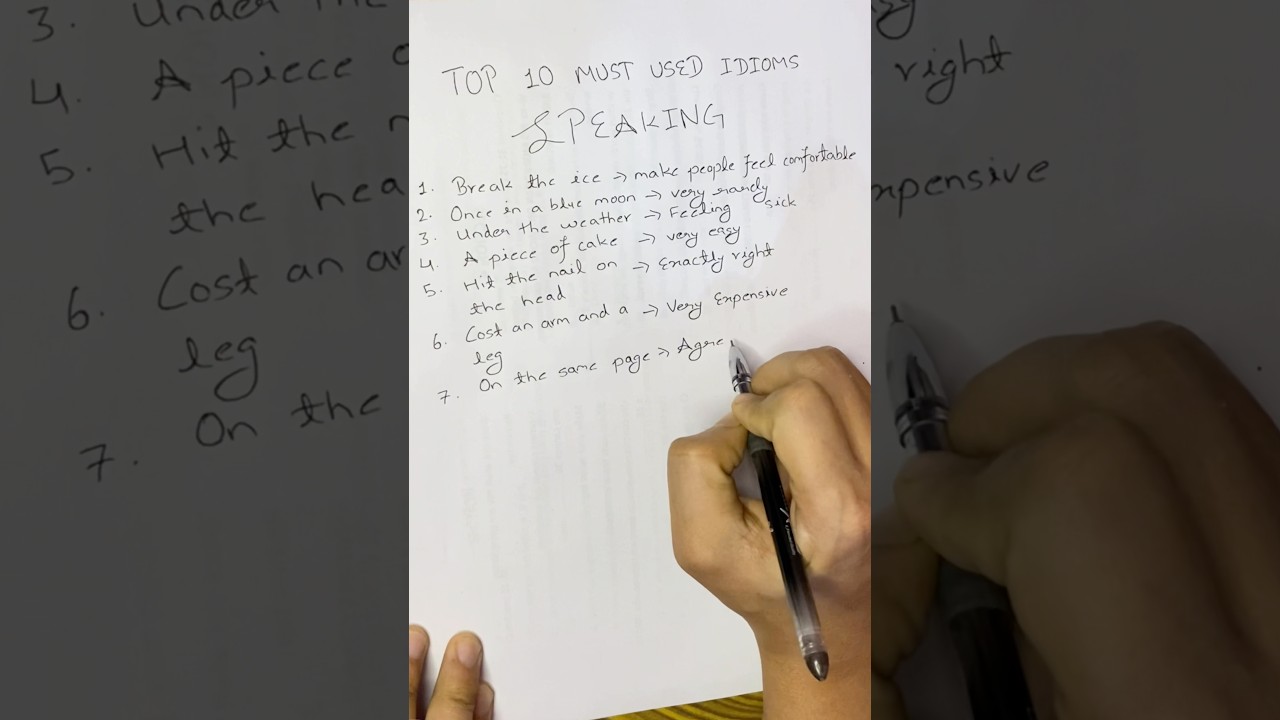 TOP 10 MUST USED IDIOMS
SPEAKING
1. Break the ice → make people feel comfortable
2. Once in a blue moon → very rarely
3. Under the weather → Feeling sick
4. A piece of cake → very easy
5. Hit the nail on → Exactly right
the head
6. Cost an arm and a → Very Expensive
leg
7. On the same page → Agree